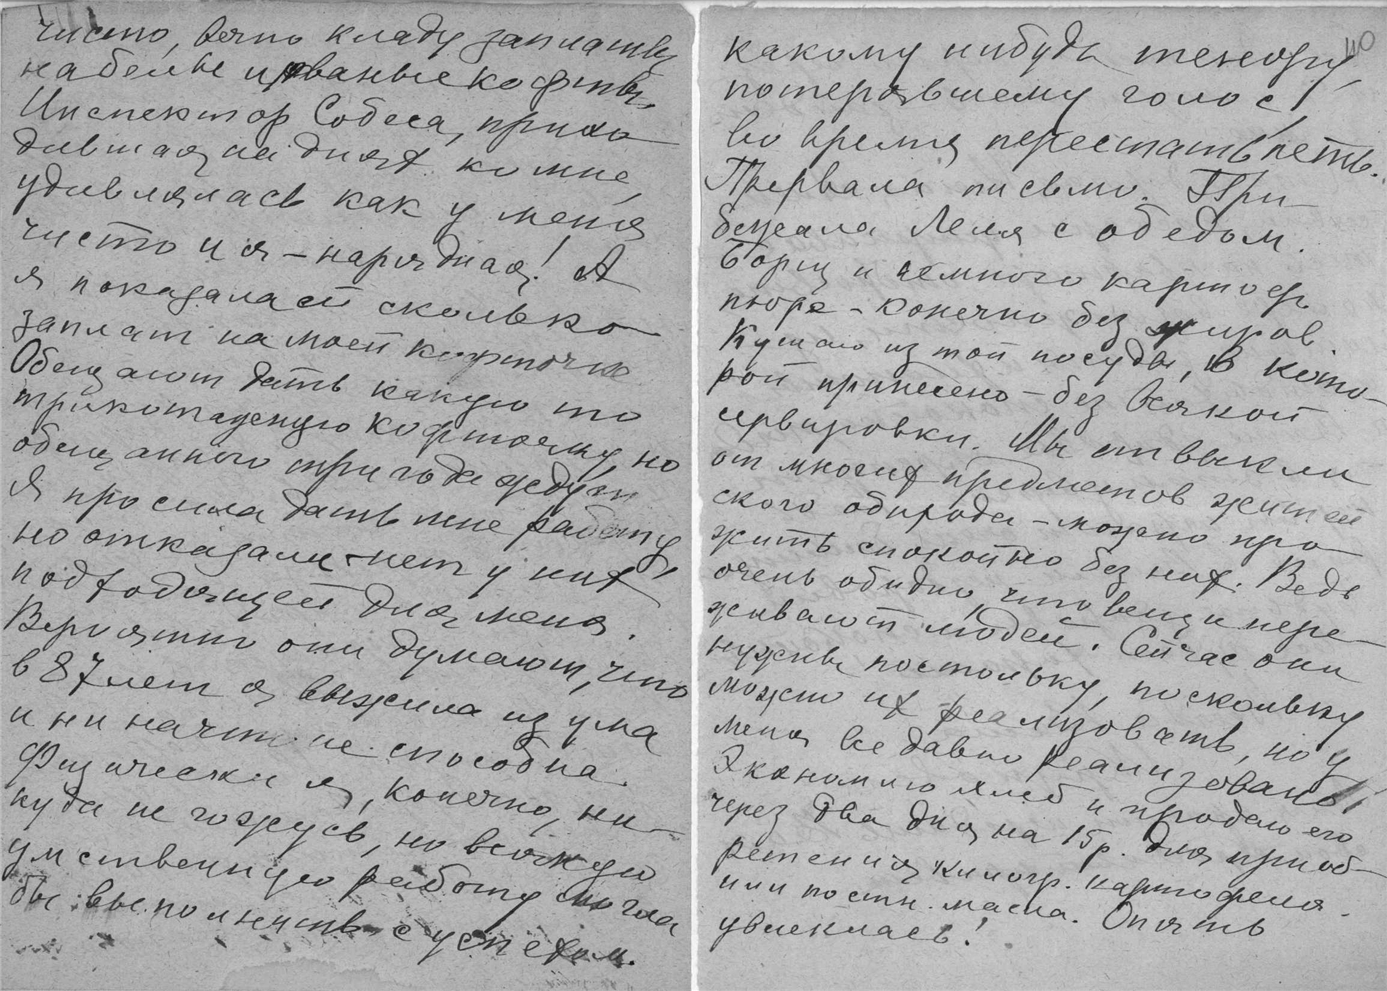 чисто, вечно кладу заплатки
на белье и рваные кофты.
Инспектор Собеса, прихо
дившая на днях ко мне,
удивлялась как у меня
чисто и я – нарядная! А
я показала ей сколько
заплат на моей кофточке
Обещают дать какую то
трикотажную кофточку, но
обещанного три года ждут
Я просила дать мне работу,
но отказали – нет у них
подходящей для меня.
Вероятно они думают, что
в 87 лет я выжила из ума
и ни на что не способна.
Физически я, конечно, ни-
куда не гожусь, но всякую
умственную работу могла
бы выполнить с успехом.
40
какому нибудь тенору,
потерявшему голос,
во время перестать петь.
Прервала письмо. При
бежала Леля с обедом.
Борщ и немного картоф.
пюре – конечно без жиров.
Кушаю из той посуды, в кото-
рой принесено – без всякой
сервировки. Мы отвыкли
от многих предметов житей
ского обихода – можно про
жить спокойно без них. Ведь
очень обидно что вещи пере-
живают людей. Сейчас они
нужны постольку, поскольку
можно их реализовать, но у
меня все давно реализовано,
Экономлю хлеб и продаю его
через два дня на 15 р. для приоб-
ретения килогр. картофеля
или постн. масла. Опять
увлеклась!